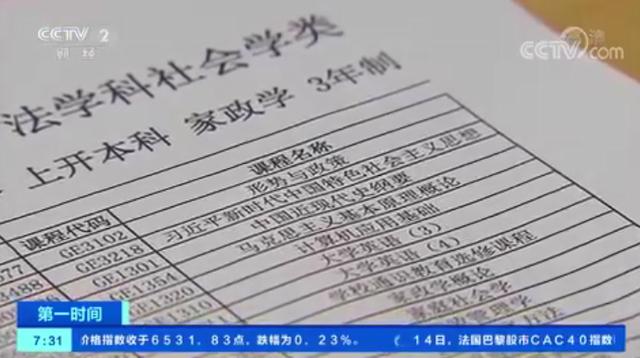 CCTV 2
财经
CCTV.com
法学科社会学类
上开本科 家政学 3年制
课程名称
课程代码 形势与政策
GE3102 习近平新时代中国特色社会主义思想
GE3218 中国近现代史纲要
GE1301 马克思主义基本原理概论
GE1354 计算机应用基础
GE1310 大学英语（3）
大学英语（4）
学校通识教育选修课程
家政学概论
家庭社会学
管理学
第一时间
7:31 价格指数收于6531.83点，跌幅为0.23%。 14日，法国巴黎股市CAC40指数